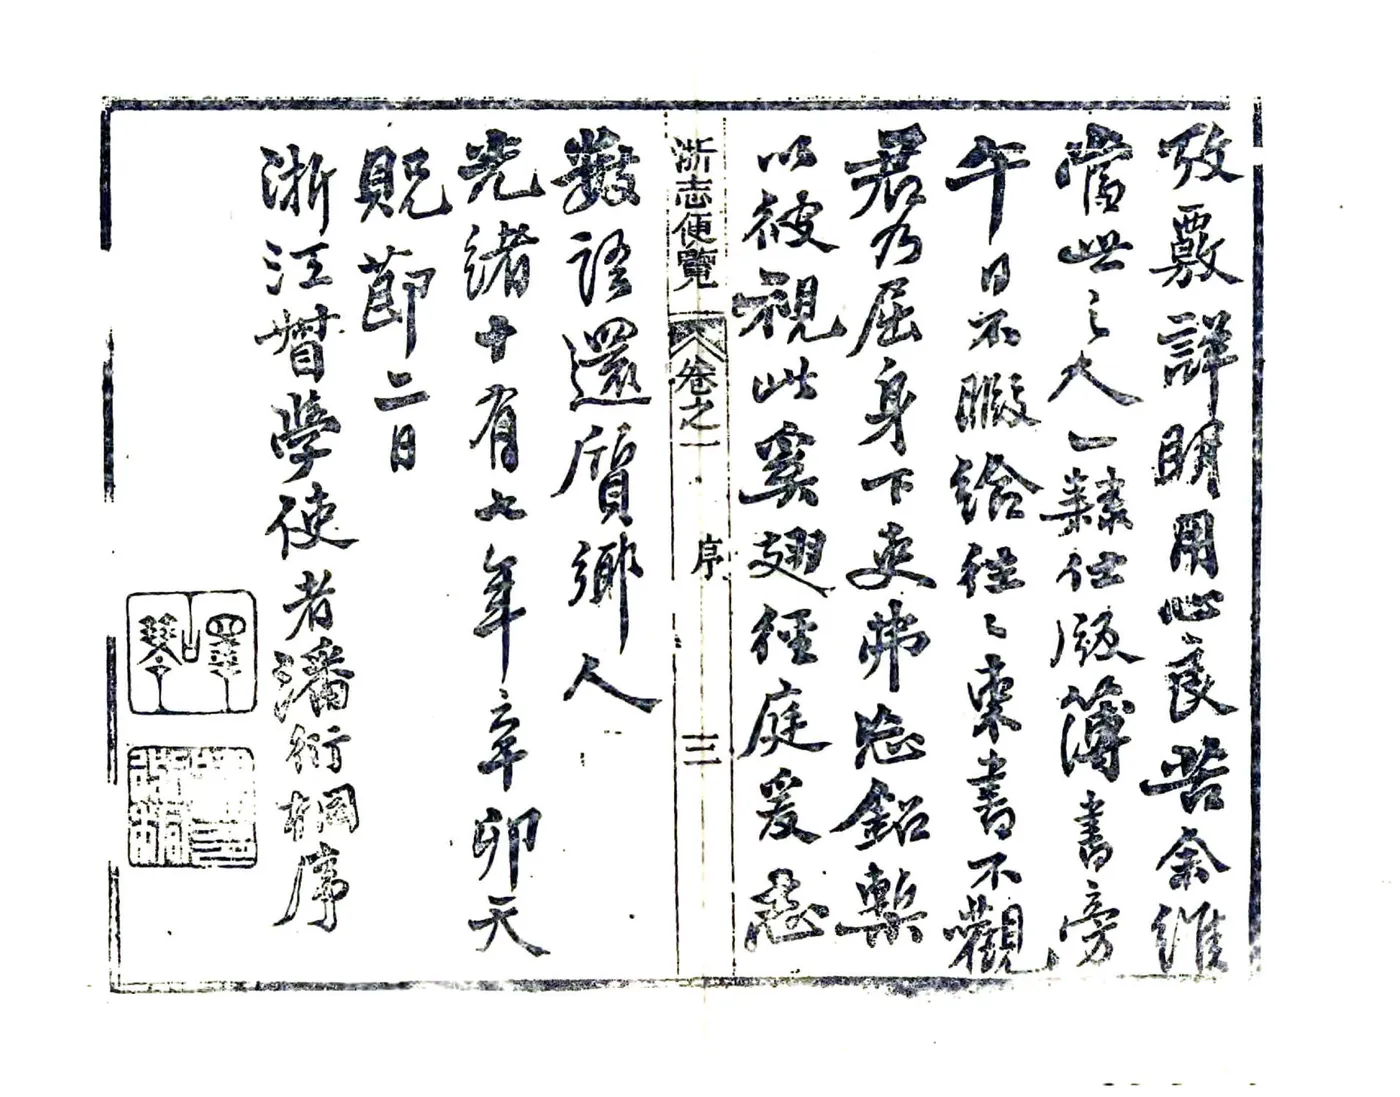 攷覈詳明用心良苦余維
當世之人一隸仕版簿書旁
午日不暇給往〻束書不觀
君乃屈身下吏弗忘鉛槧
以彼視此奚翅徑庭爰志
浙志便覽 卷之一 序 三
數語還質鄉人
光緒十有七年辛卯天
貺節二日
浙江督學使者潘衍桐序
嶧琴